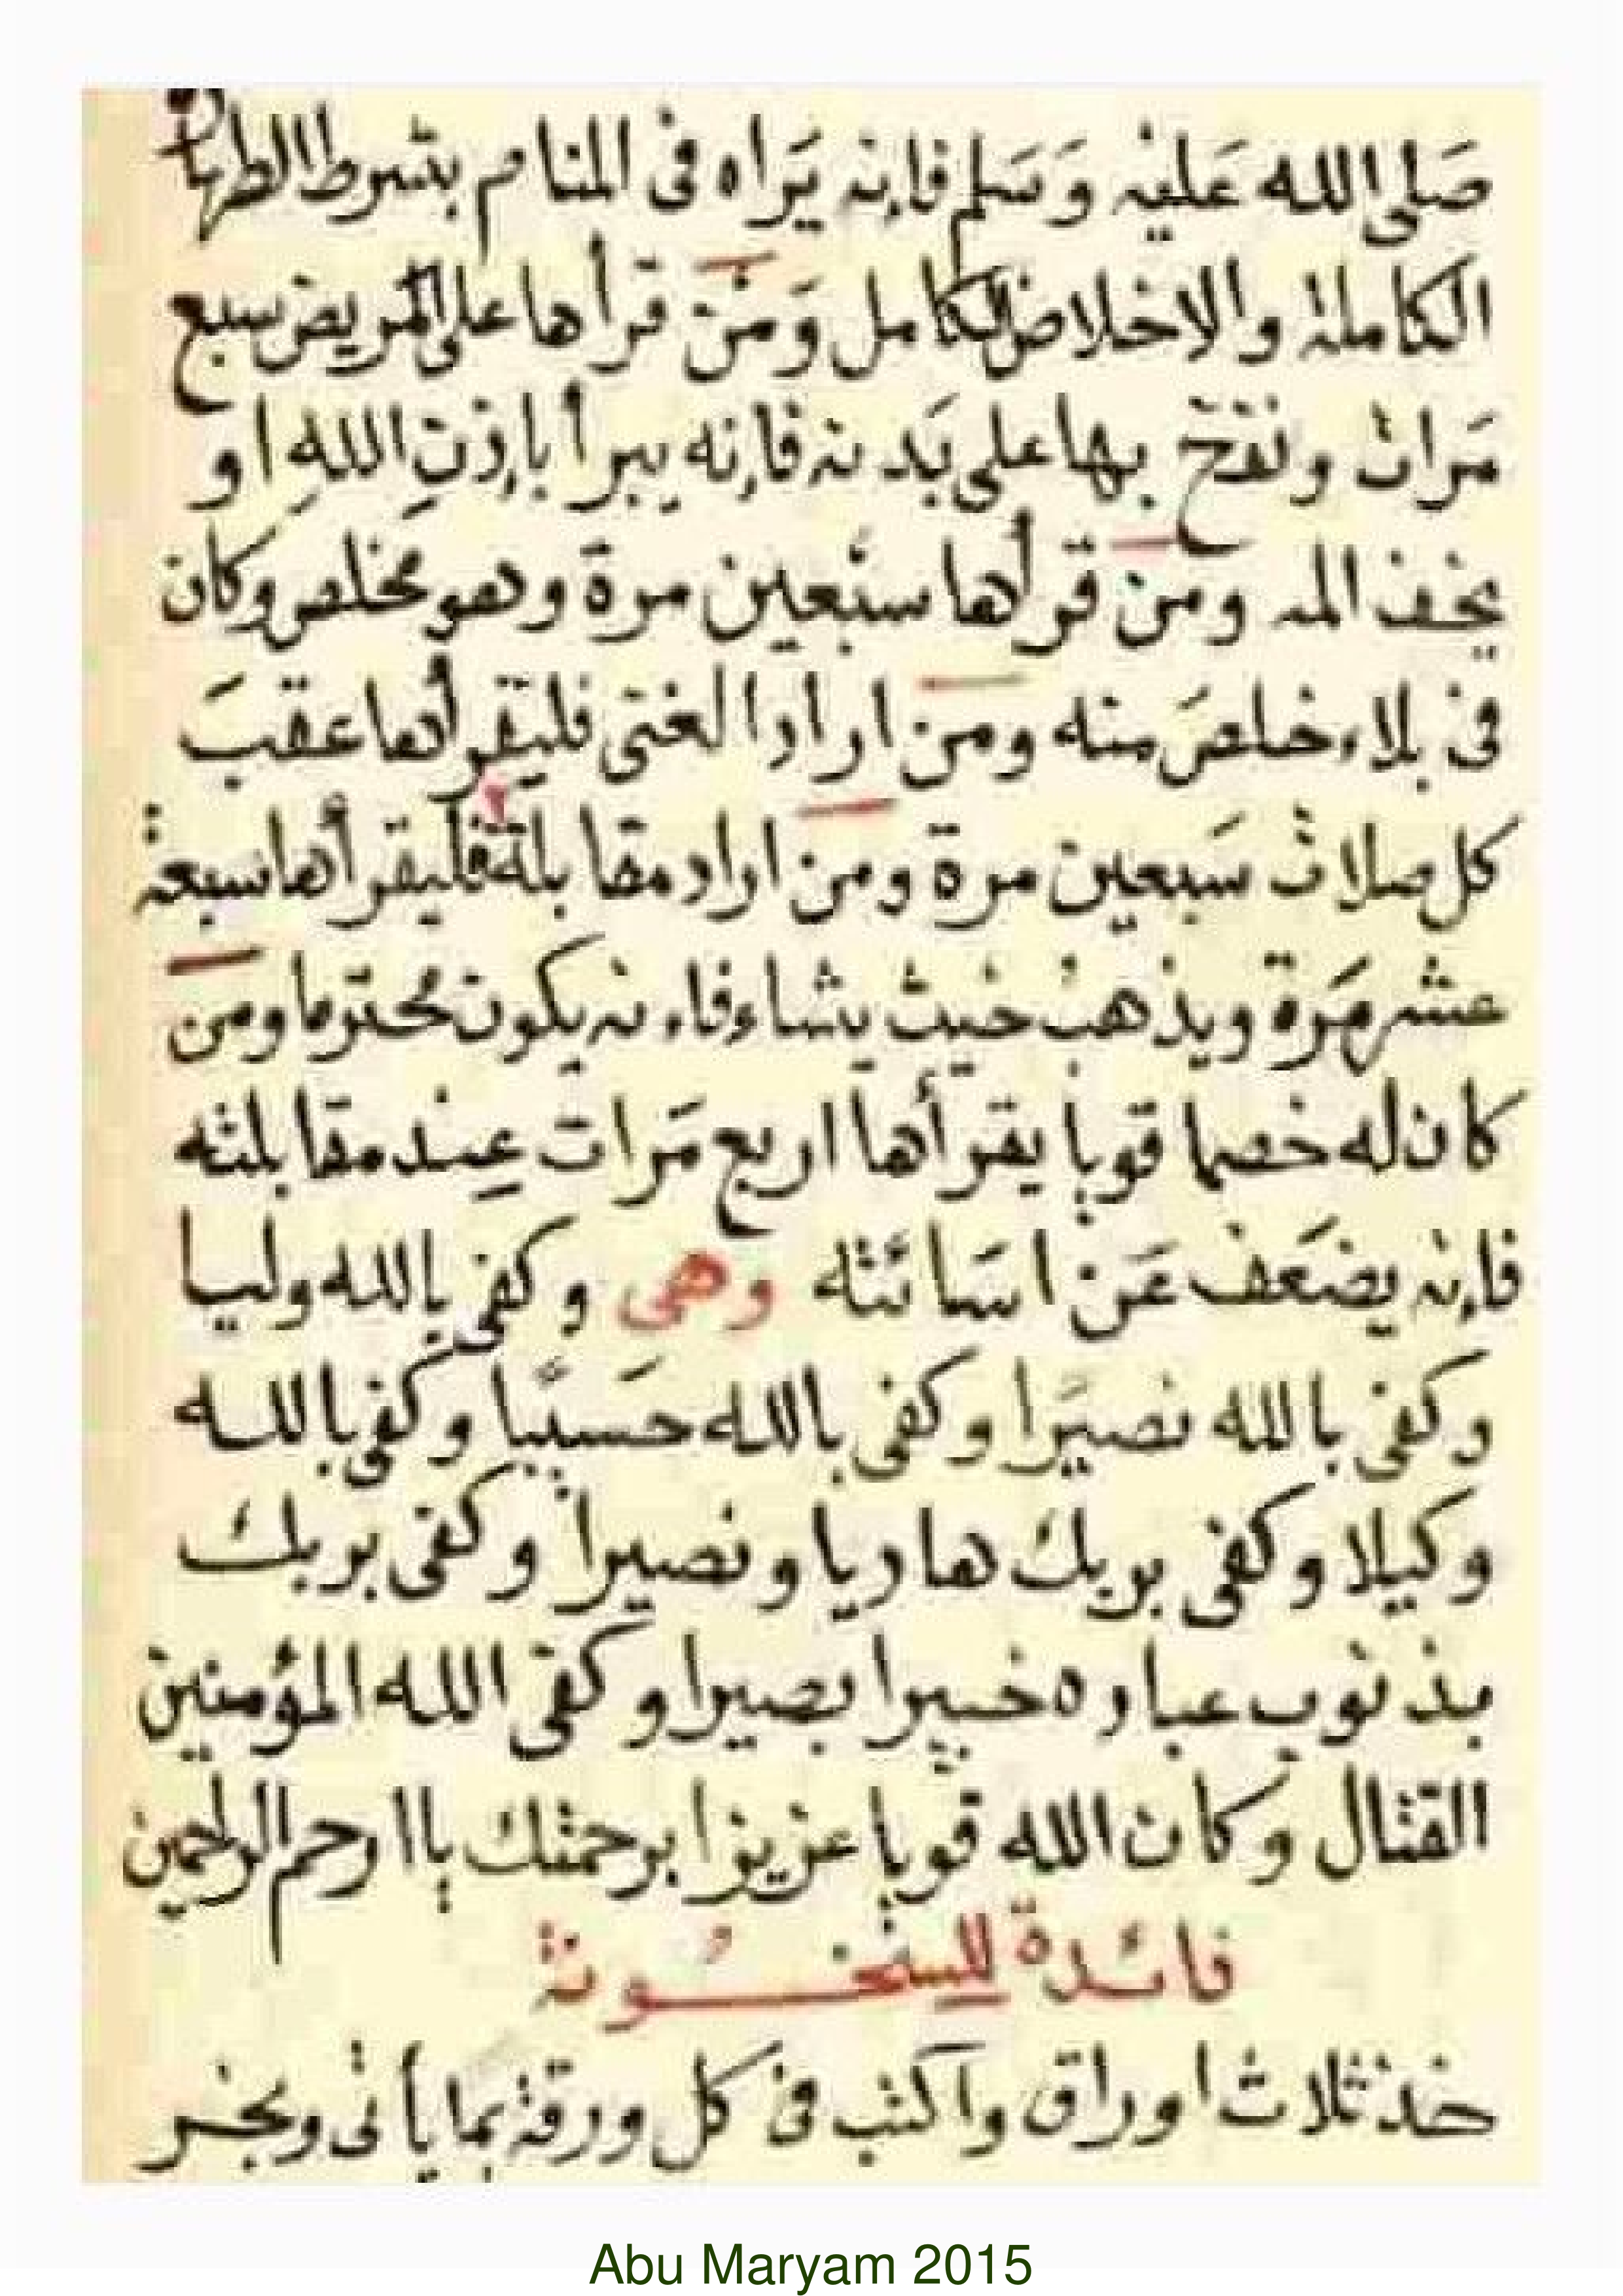 صَلى الله عَليْه وَسَلم فإنه يَراه فى المنام بشرط الطهارة
الكاملة والاخلاص الكامل وَمَنْ قرأها على المريض سبع
مَرات ونفخ بها على بَدنه فإنه يبرأ بإذنِ اللهِ او
يخف المه ومن قرأها سبْعين مرة وهو مخلص وكان
فى بلاء خلصَ منه ومن اراد الغنى فليقرأها عقبَ
كل صلات سَبعين مرة ومن اراد مقابلة فليقرأها سبعة
عشر مَرة ويذهب حيث يشاء فاءنه يكون محترما ومن
كان له خصما قويا يقرأها اربع مَرات عِند مقابلته
فإنه يضعَف عَن اسَائته وهى وكفى بالله وليا
وكفى بالله نصيَرا وكفى بالله حَسيبًا وكفى بالله
وكيلا وكفى بربك هاديا ونصيرا وكفى بربك
بذنوب عباده خبيرا بصيرا وكفى الله المؤمنين
القتال وكان الله قويا عزيزا برحمتك ياارحم الراحمين
فائدة للسخونة
خذ ثلاث اوراق واكتب فى كل ورقة بما يأتى وبخر
Abu Maryam 2015